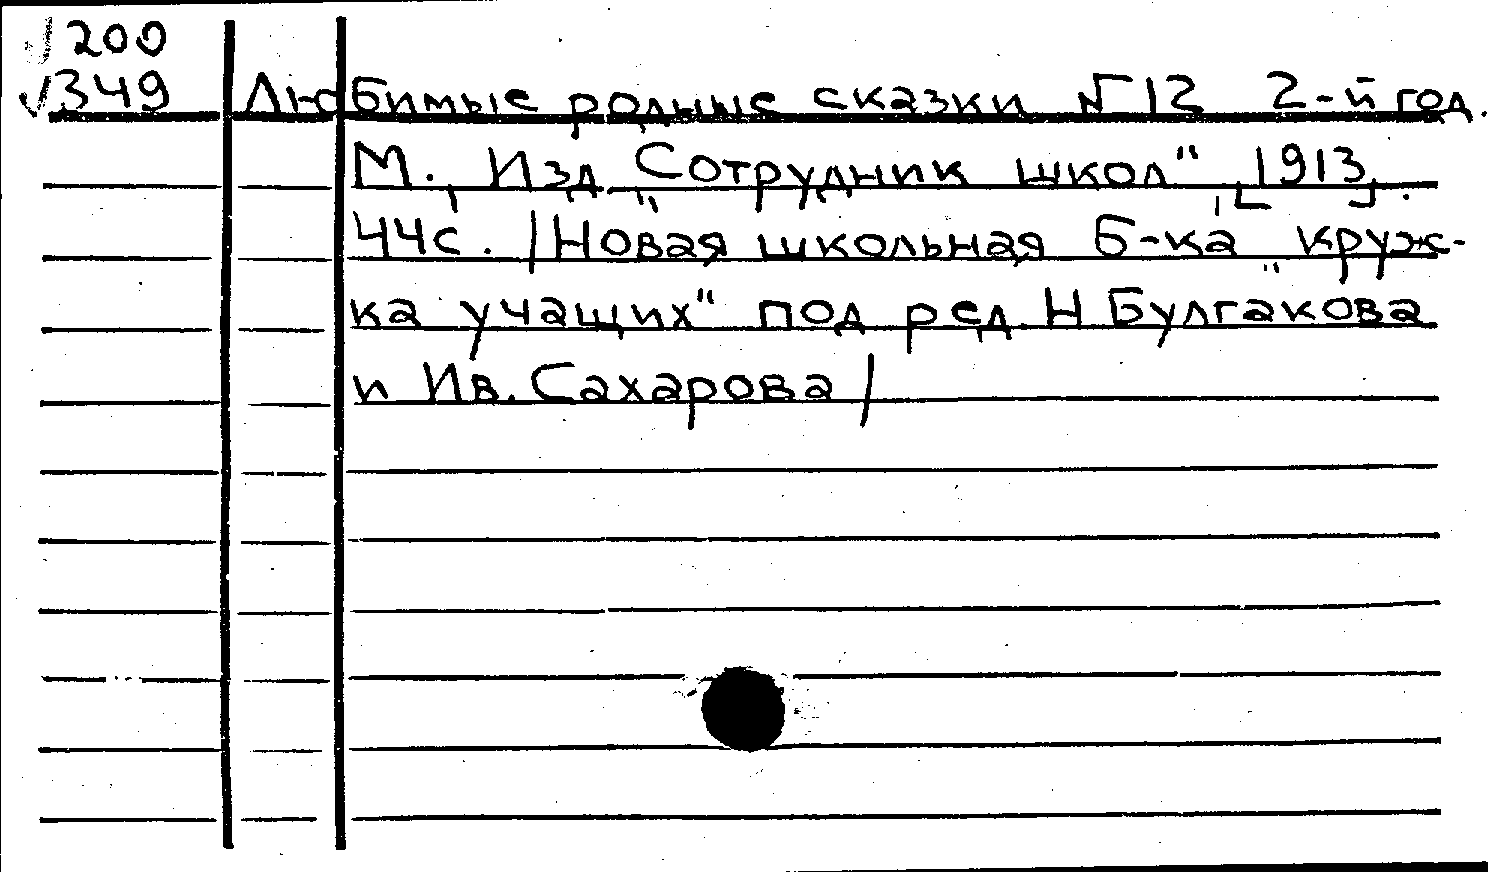 200
349
Любимые родные сказки №12 2-й год.
М., Изд. „Сотрудник школ", [1913].
44с. /Новая школьная б-ка „круж-
ка учащих" под ред. Н Булгакова
и Ив. Сахарова/